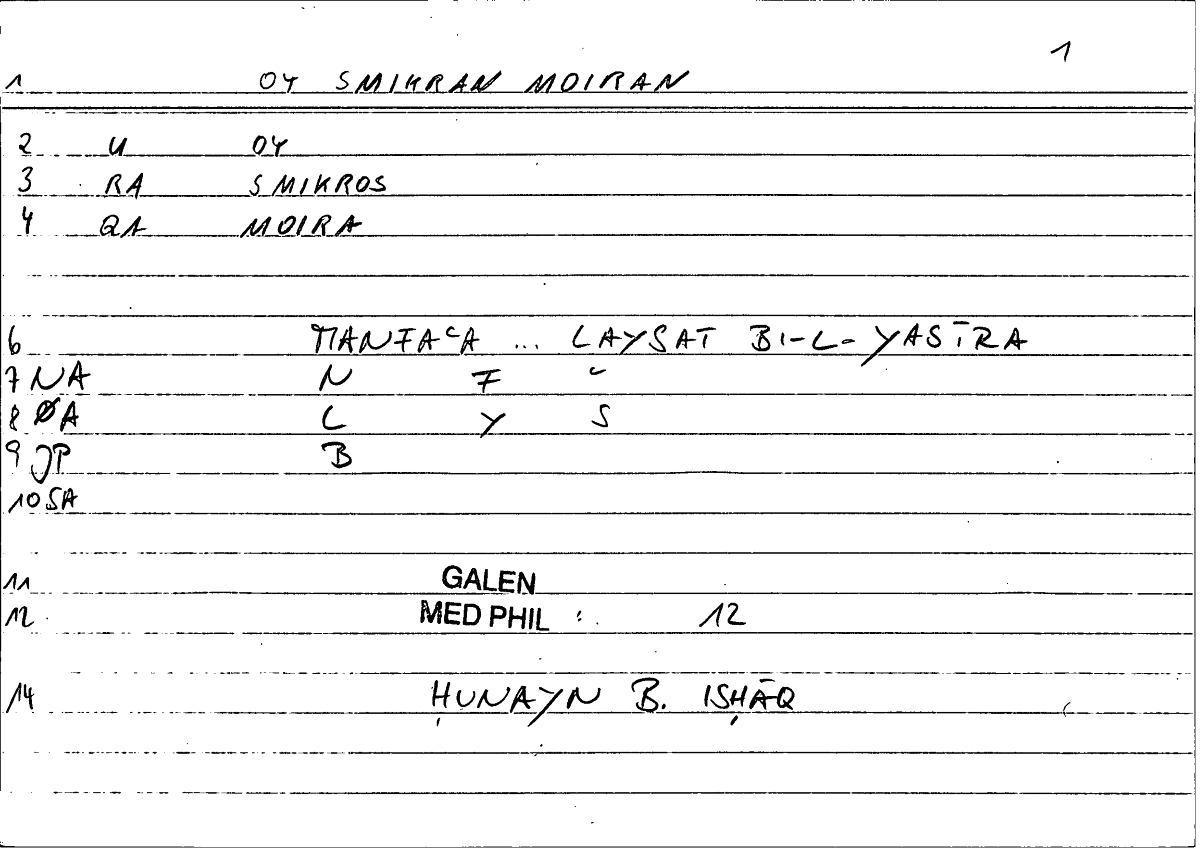 1
1 OY SMIKRAN MOIRAN
2 U OY
3 RA SMIKROS
4 QA MOIRA
6 MANFAʿA ... LAYSAT BI-L-YASĪRA
7 NA N F ʿ
8 ØA L Y S
9 JP B
10 SA
11 GALEN
12 MED PHIL : 12
14 ḤUNAYN B. ISḤĀQ